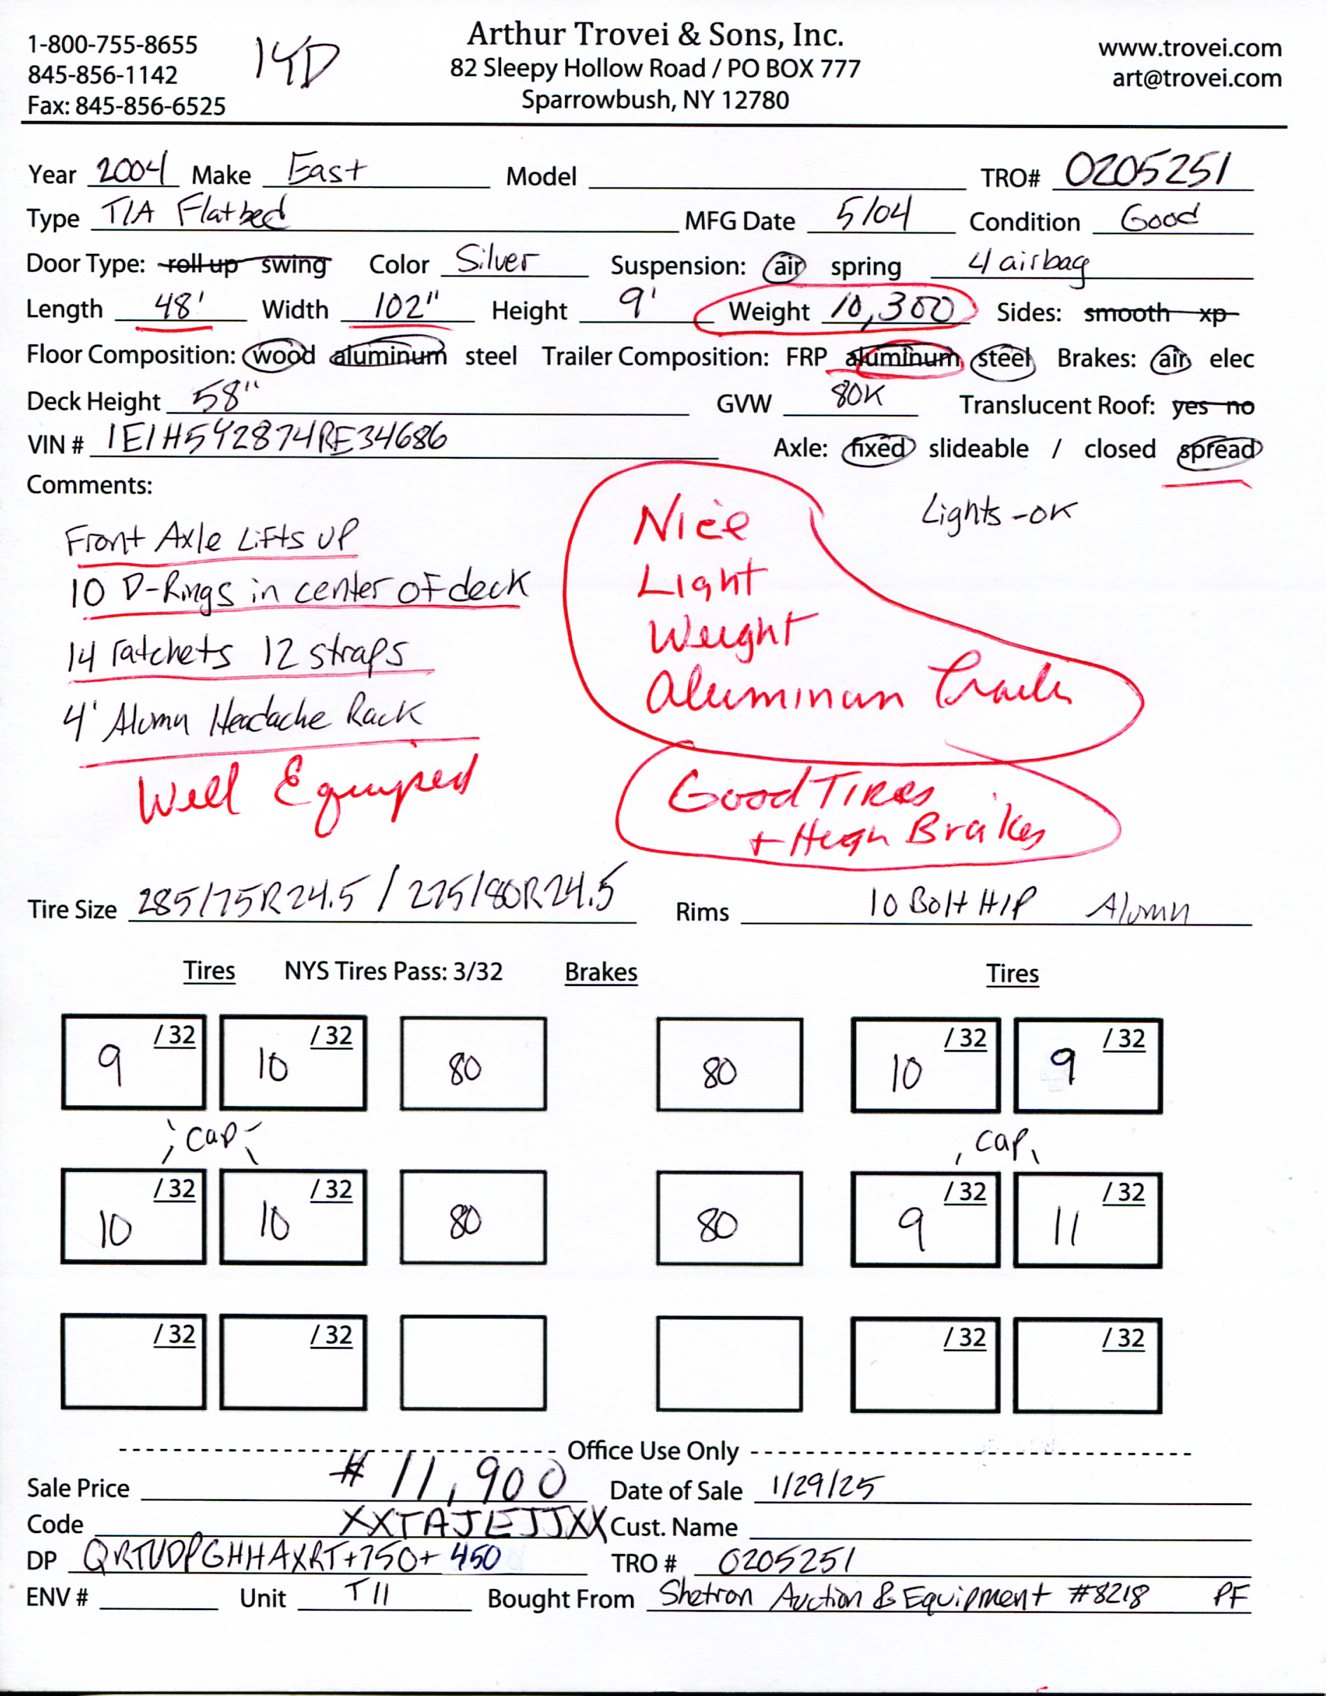 1-800-755-8655
845-856-1142
Fax: 845-856-6525
14D
Arthur Trovei & Sons, Inc.
82 Sleepy Hollow Road / PO BOX 777
Sparrowbush, NY 12780
www.trovei.com
art@trovei.com
Year 2004 Make East Model TRO# 0205251
Type T/A Flatbed MFG Date 5/04 Condition Good
Door Type: roll up swing Color Silver Suspension: air spring 4 airbag
Length 48' Width 102" Height 9' Weight 10,300 Sides: smooth xp
Floor Composition: wood aluminum steel Trailer Composition: FRP aluminum steel Brakes: air elec
Deck Height 58" GVW 80K Translucent Roof: yes no
VIN # 1E1H5Y2874RE34686 Axle: fixed slideable / closed spread
Comments:
Lights-OK
Front Axle Lifts up
10 D-Rings in center of deck
14 ratchets 12 straps
4' Alumn Headache Rack
Well Equiped
Nice
Light
Weight
Aluminum
Good Tires
+ High Brakes
Tire Size 285/75R24.5 / 275/80R24.5 Rims 10 Bolt H/P Alumn
Tires NYS Tires Pass: 3/32 Brakes Tires
9 /32 10 /32 80 80 10 /32 9 /32
Cap Cap
10 /32 10 /32 80 80 9 /32 11 /32
/32 /32 /32 /32
Office Use Only
Sale Price # 11,900 Date of Sale 1/29/25
Code XXTAJEJJXX Cust. Name
DP QRTUDPGHHAXRT+750+450 TRO # 0205251
ENV # Unit T11 Bought From Shetron Auction & Equipment #8218 PF